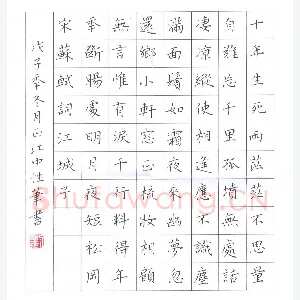 十年生死兩茫茫不思量
自難忘千里孤墳無處話
凄涼縱使相逢應不識塵
滿面鬢如霜夜來幽夢忽
還鄉小軒窗正梳妝相顧
無言惟有淚千行料得年
秊斷腸處明月夜短松岡
宋蘇軾詞江城子
戊子秊冬月正江中性筆書
Shufawang.CN